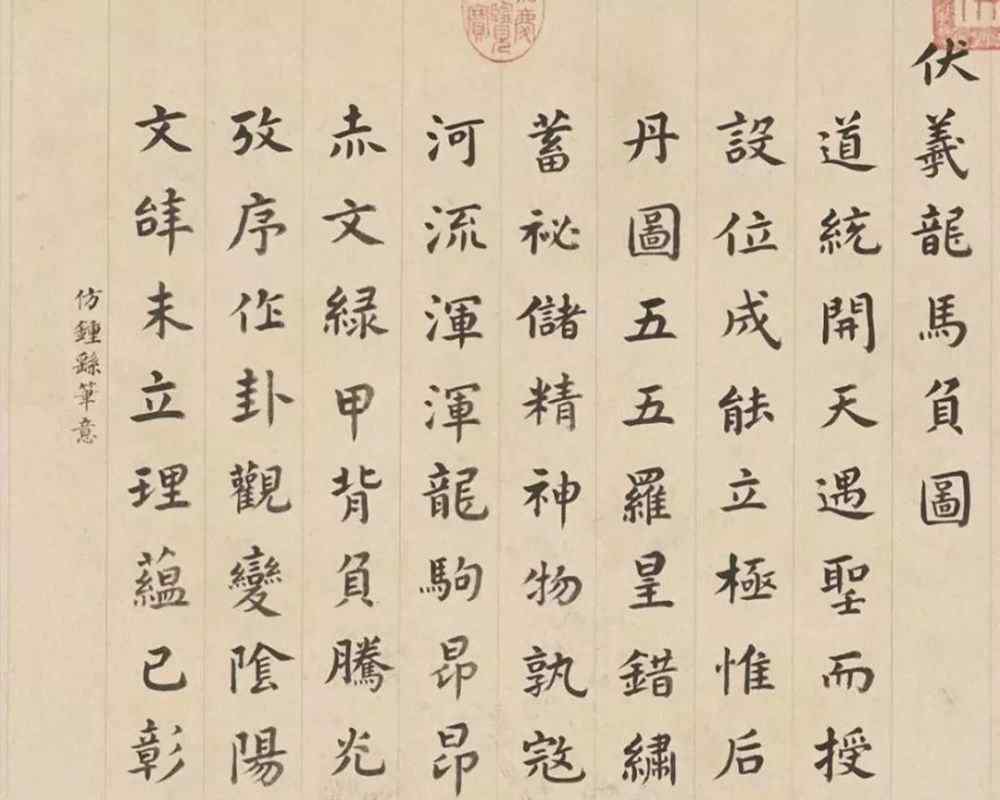 伏羲龍馬負圖
道統開天遇聖而授
設位成能立極惟后
丹圖五五羅星錯繡
蓄祕儲精神物孰寇
河流渾渾龍駒昂昂
赤文緑甲背負騰光
攷序作卦觀變陰陽
文辝未立理藴已彰
仿鍾繇筆意